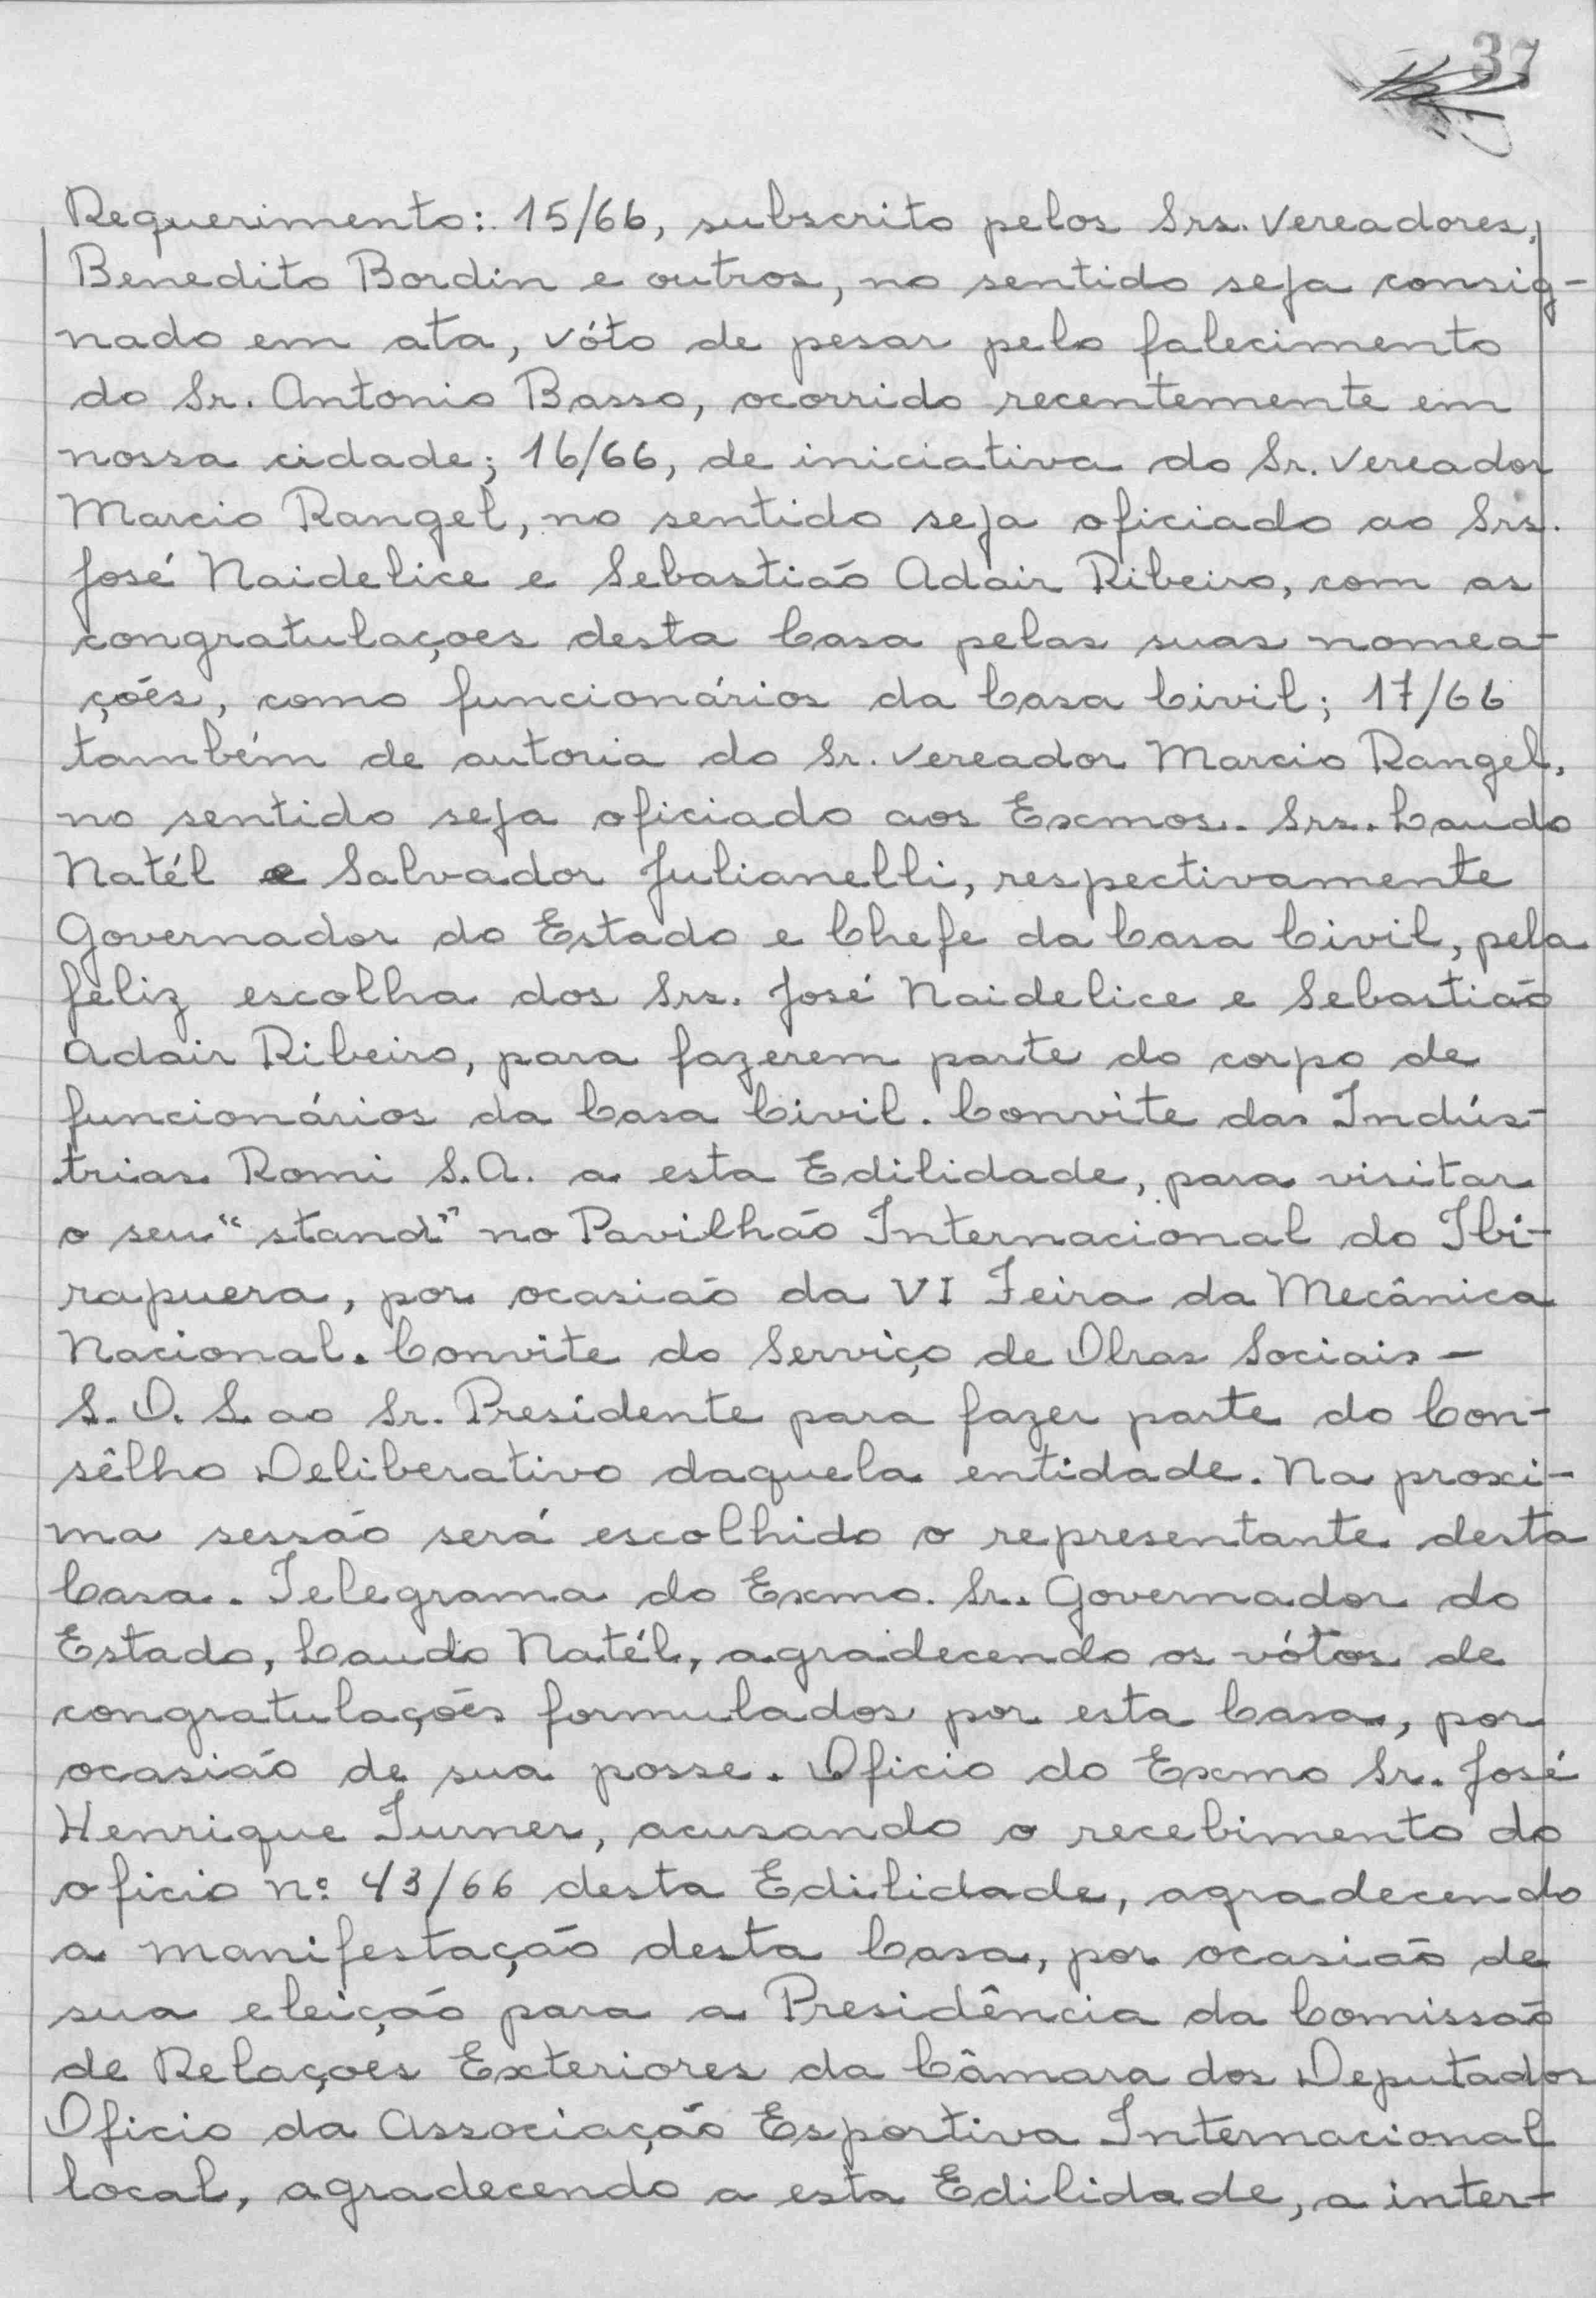 37
Requerimento: 15/66, subscrito pelos Srs. Vereadores,
Benedito Bordin e outros, no sentido seja consig-
nado em ata, vóto de pesar pelo falecimento
do Sr. Antonio Basso, ocorrido recentemente em
nossa cidade; 16/66, de iniciativa do Sr. Vereador
Marcio Rangel, no sentido seja oficiado ao Srs.
José Naidelice e Sebastião Adair Ribeiro, com as
congratulaçoes desta Casa pelas suas nomea-
ções, como funcionários da Casa Civil; 17/66
também de autoria do Sr. Vereador Marcio Rangel,
no sentido seja oficiado aos Exmos. Srs. Laudo
Natél e Salvador Julianelli, respectivamente
Governador do Estado e Chefe da Casa Civil, pela
feliz escolha dos Srs. José Naidelice e Sebastião
Adair Ribeiro, para fazerem parte do corpo de
funcionários da Casa Civil. Convite das Indús-
trias Romi S.A. a esta Edilidade, para visitar
o seu "stand" no Pavilhão Internacional do Ibi-
rapuera, por ocasião da VI Feira da Mecânica
Nacional. Convite do Serviço de Obras Sociais -
S. O. S. ao Sr. Presidente para fazer parte do Con-
sêlho Deliberativo daquela entidade. Na proxi-
ma sessão será escolhido o representante desta
Casa. Telegrama do Exmo. Sr. Governador do
Estado, Laudo Natél, agradecendo os vótos de
congratulações formulados por esta Casa, por
ocasião de sua posse. Oficio do Exmo Sr. José
Henrique Turner, acusando o recebimento do
oficio nº 43/66 desta Edilidade, agradecendo
a manifestação desta Casa, por ocasião de
sua eleição para a Presidência da Comissão
de Relaçoes Exteriores da Câmara dos Deputados
Oficio da Associação Esportiva Internacional
local, agradecendo a esta Edilidade, a inter-